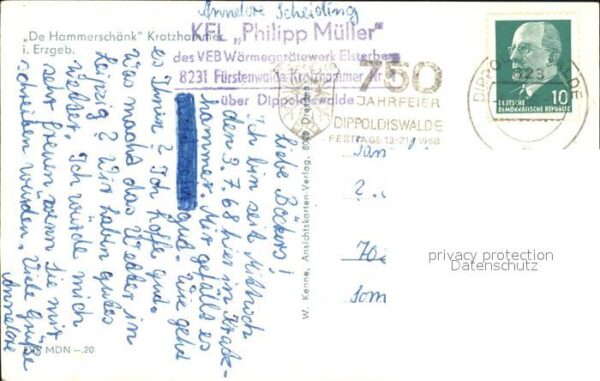 Annelore Scheiding
„De Hammerschänk" Kratzhammer
i. Erzgeb.
KFL „Philipp Müller"
des VEB Wärmegerätewerk Elsterberg
8231 Fürstenwalde Kratzhammer Nr.
über Dippoldiswalde
750
JAHRFEIER
DIPPOLDISWALDE
FESTTAGE 13-21 1968
DIPPOLDISWALDE
823
DEUTSCHE
DEMOKRATISCHE REPUBLIK
10
Liebe Böckers,
Ich bin seit Mittwoch
den 3.7.68 hier in Kratz-
hammer. Mir gefällt es
gut. Wie geht
es Ihnen? Ich hoffe gut.
Was macht das Wetter in
Leipzig? Wir haben gutes
Wetter. Ich würde mich
sehr freuen wenn Sie mir
schreiben würden. Viele Grüße
Annelore
W. Kenne, Ansichtskarten-Verlag, Dresden
MDN -.20
Fam
70
Som
privacy protection
Datenschutz